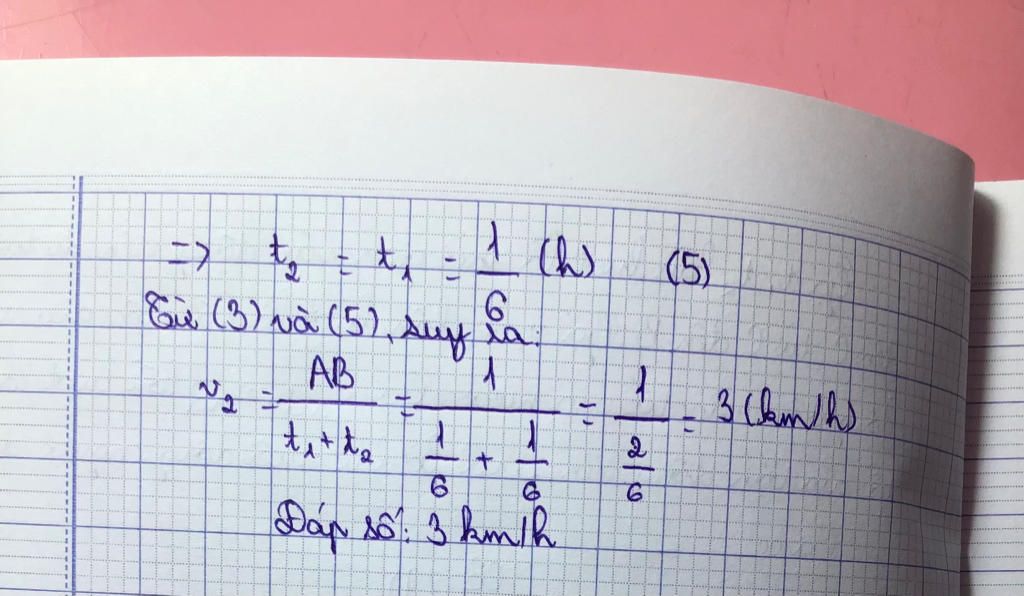 => t₂ = t₁ = 1/6 (h) (5)
Từ (3) và (5), suy ra:
v₂ = AB/(t₁ + t₂) = 1/(1/6 + 1/6) = 1/(2/6) = 3 (km/h)
Đáp số: 3 km/h